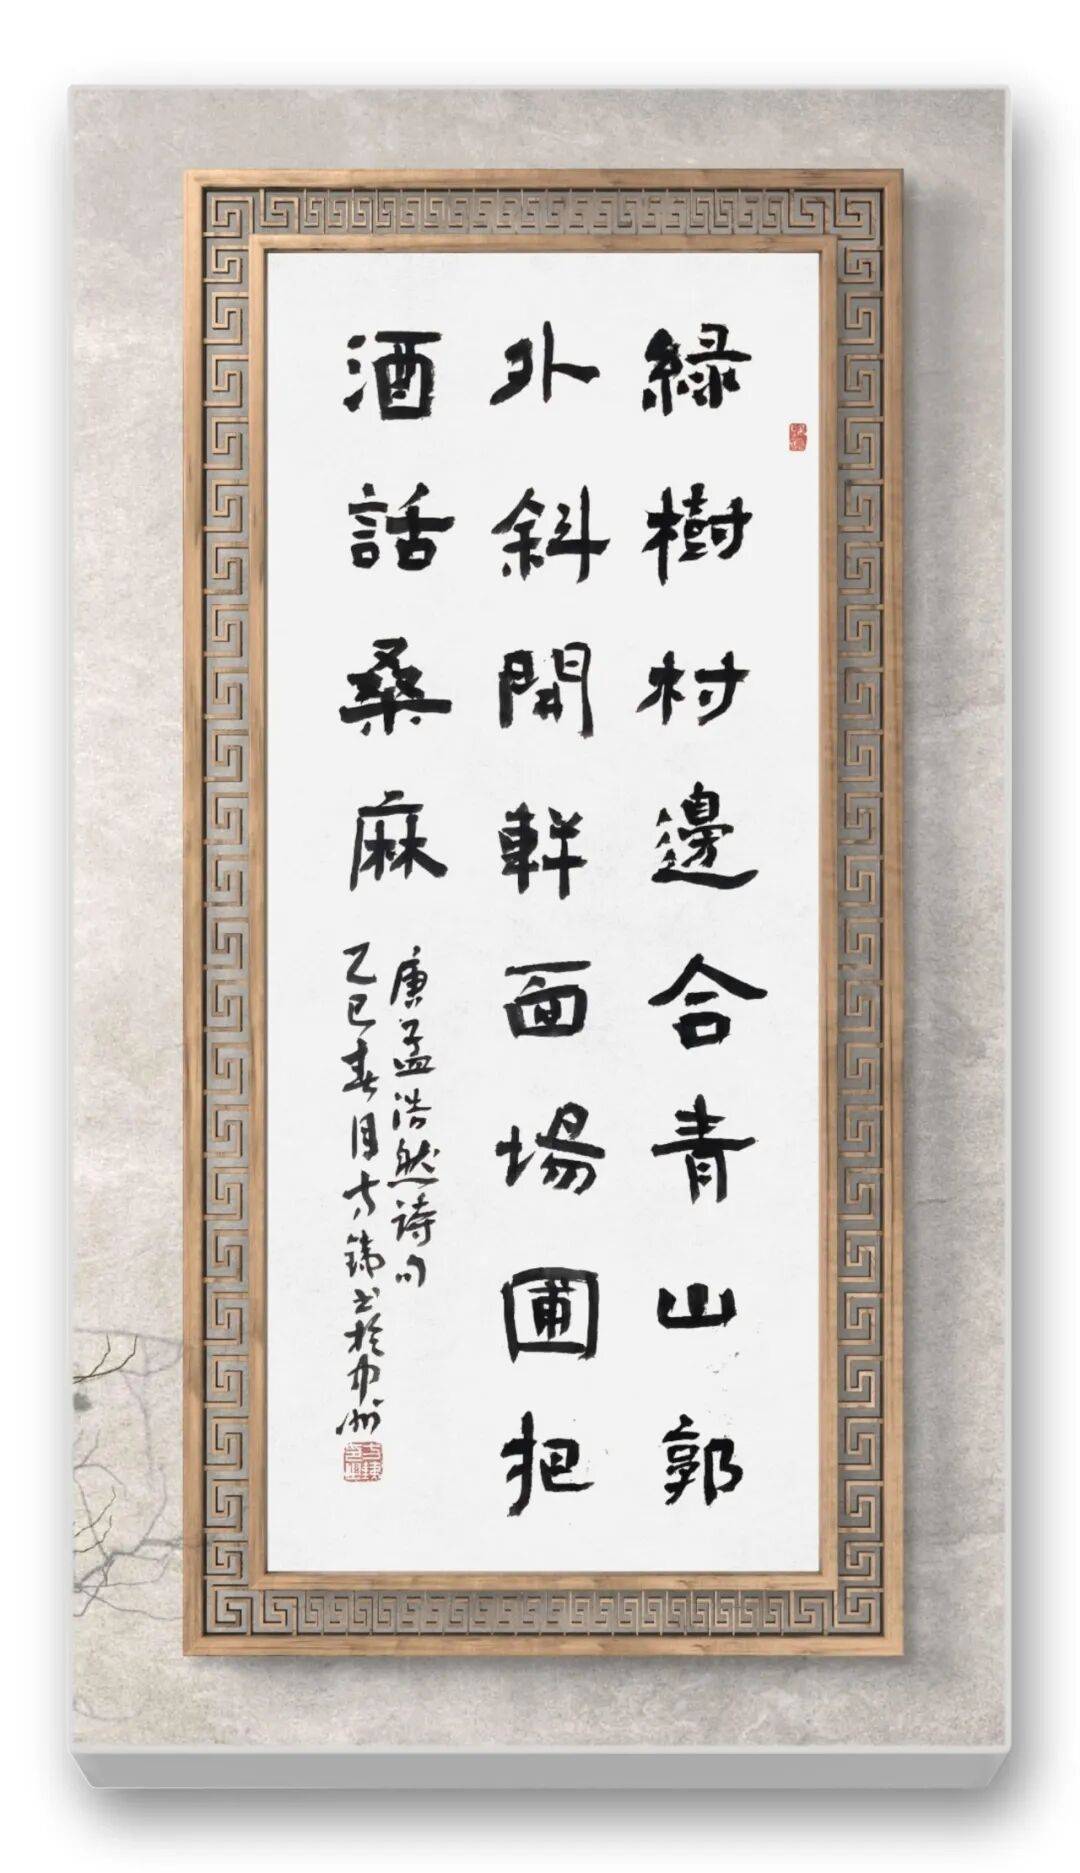 綠樹村邊合青山郭
外斜開軒面場圃把
酒話桑麻
唐孟浩然詩句
乙巳春月方鏽書於中州